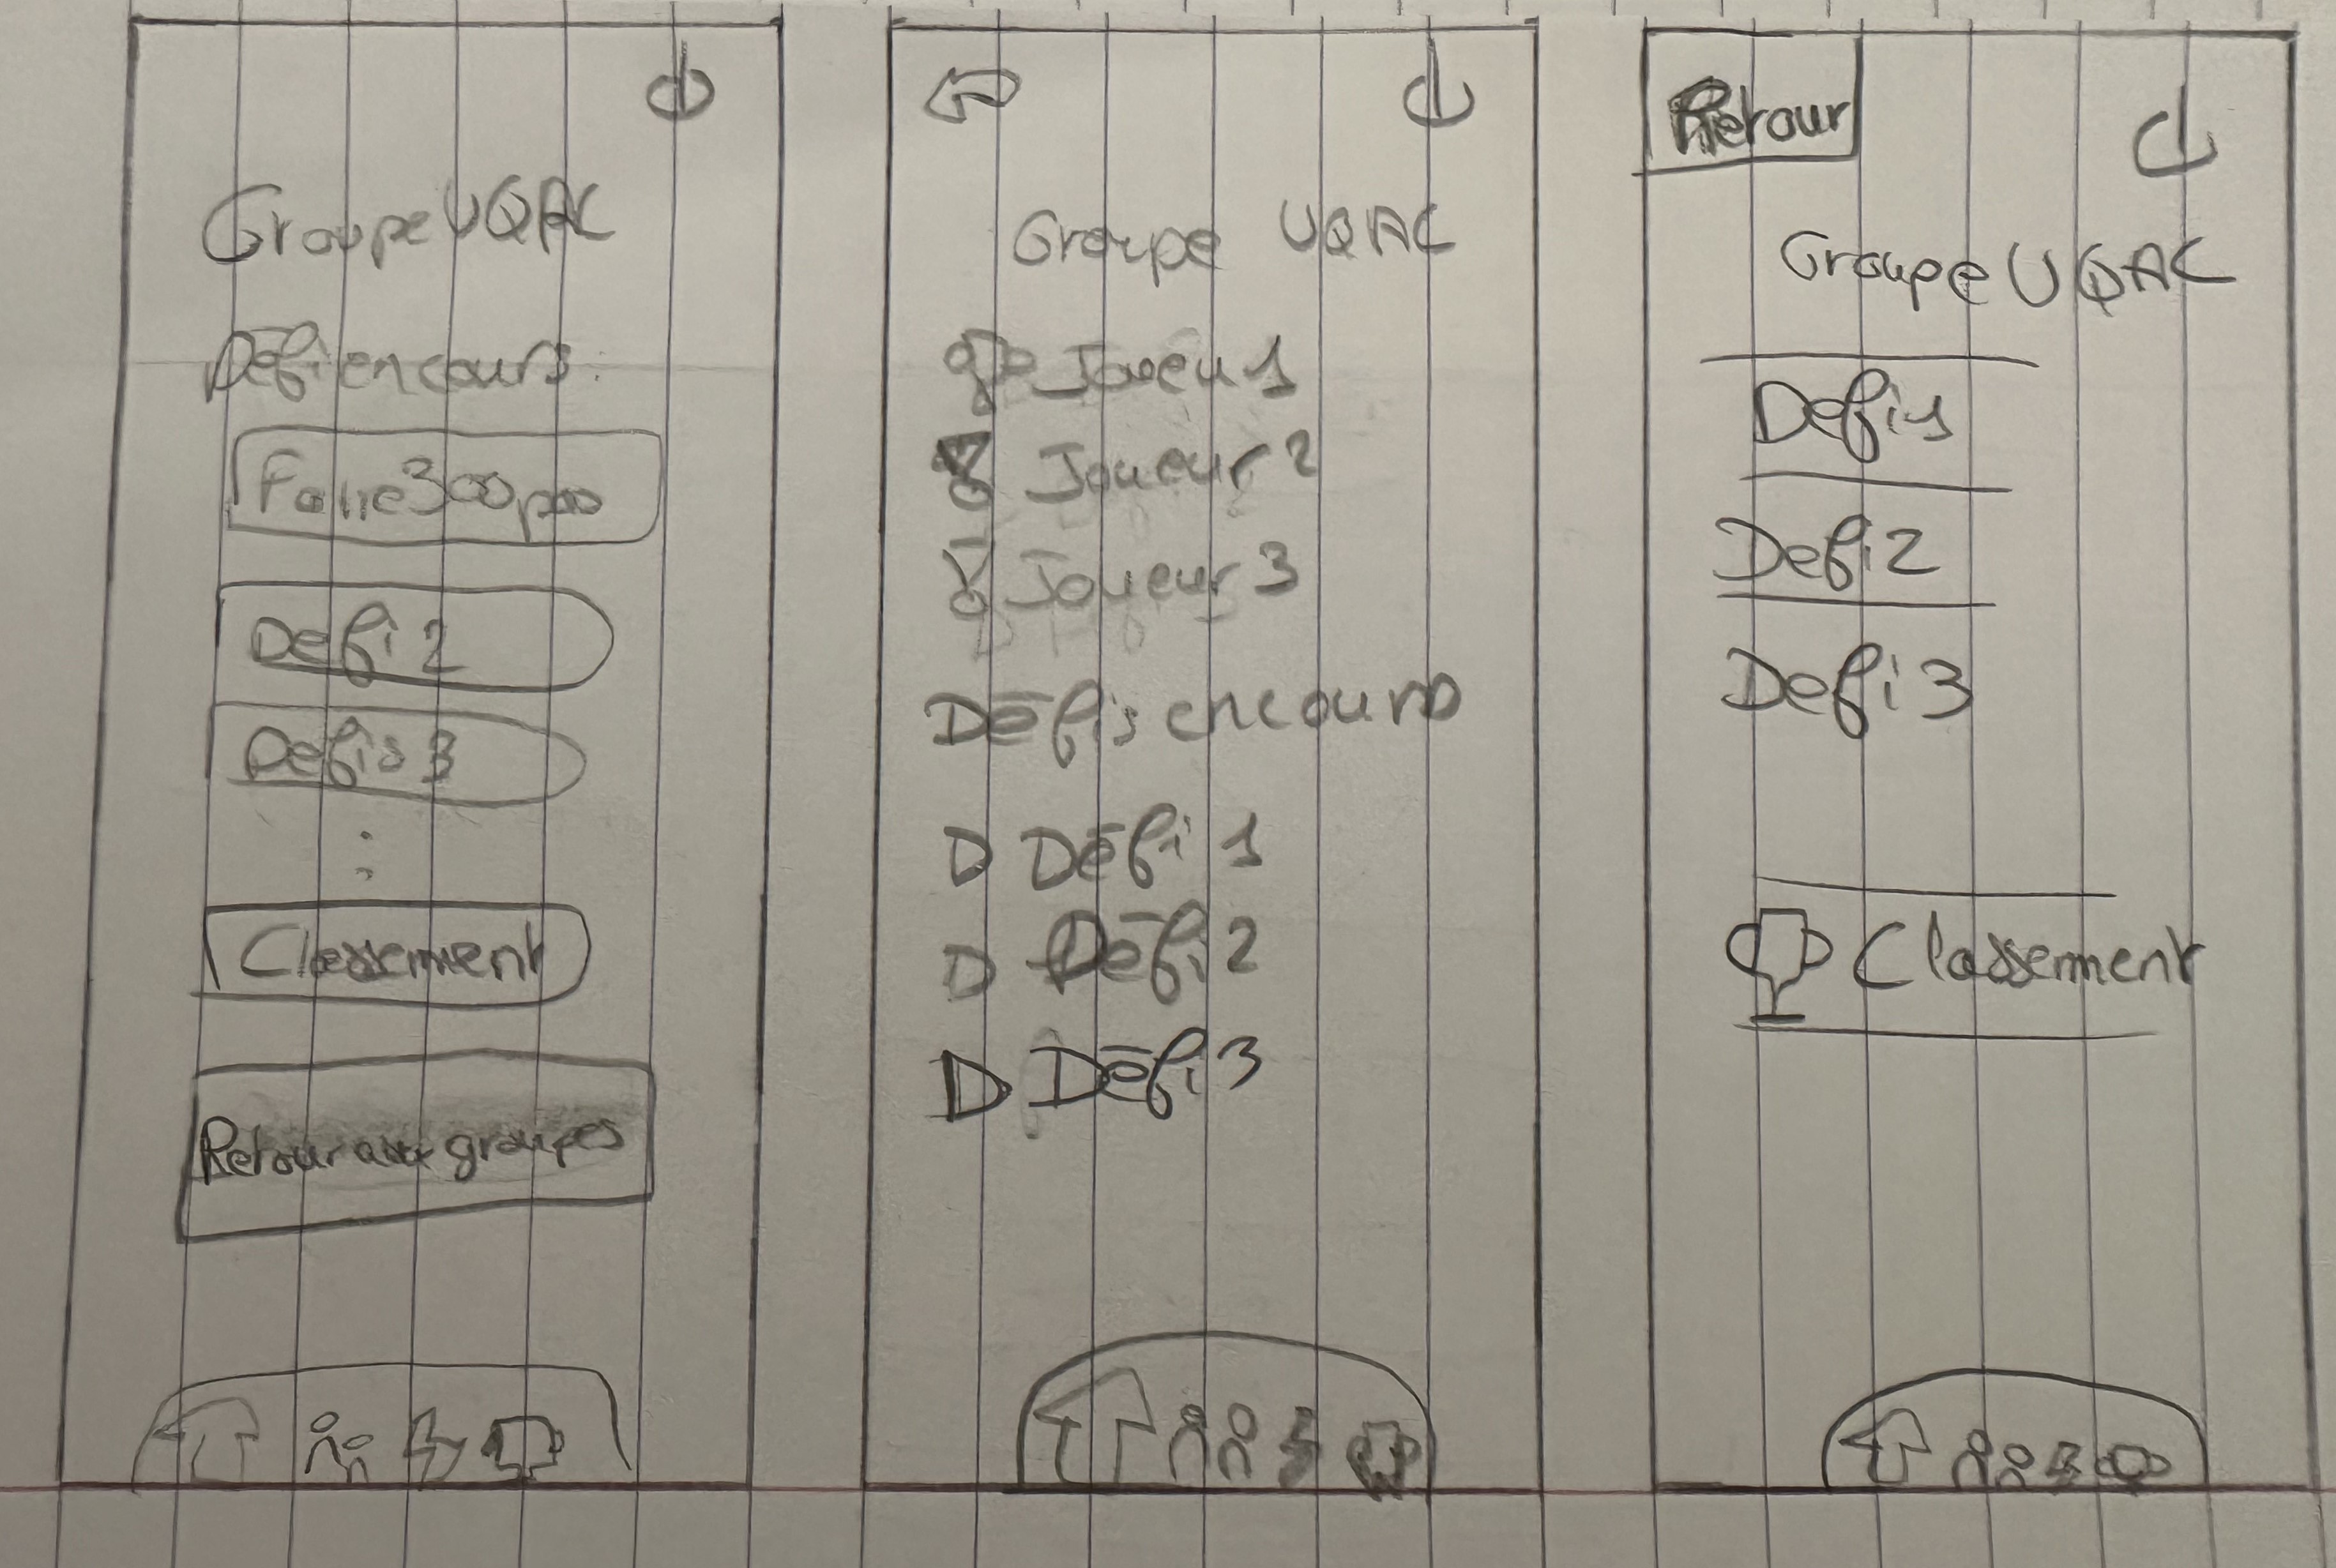 Groupe UQAC
Défi en cours :
Faire 300 pas
Defi 2
Defis 3
:
Classement
Retour aux groupes
Groupe UQAC
Joueu 1
Joueur 2
Joueur 3
Défis en cours
D Défi 1
D Défi 2
D Défi 3
Retour
Groupe UQAC
Defi 1
Defi 2
Defi 3
Classement